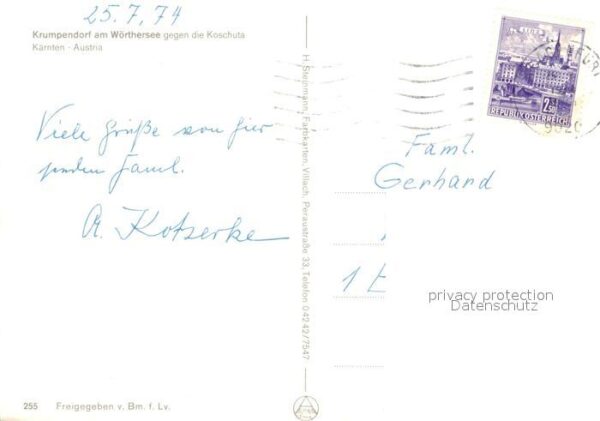 25.7.74
Krumpendorf am Wörthersee gegen die Koschuta
Kärnten - Austria
Viele Grüße von hier
senden Faml.
A. Kotzerke
H. Steinmann, Farbkarten, Villach, Peraustraße 33, Telefon 0 42 42/7547
2.50
REPUBLIK ÖSTERREICH
9020
Faml.
Gerhard
1
privacy protection
Datenschutz
255 Freigegeben v. Bm. f. Lv.